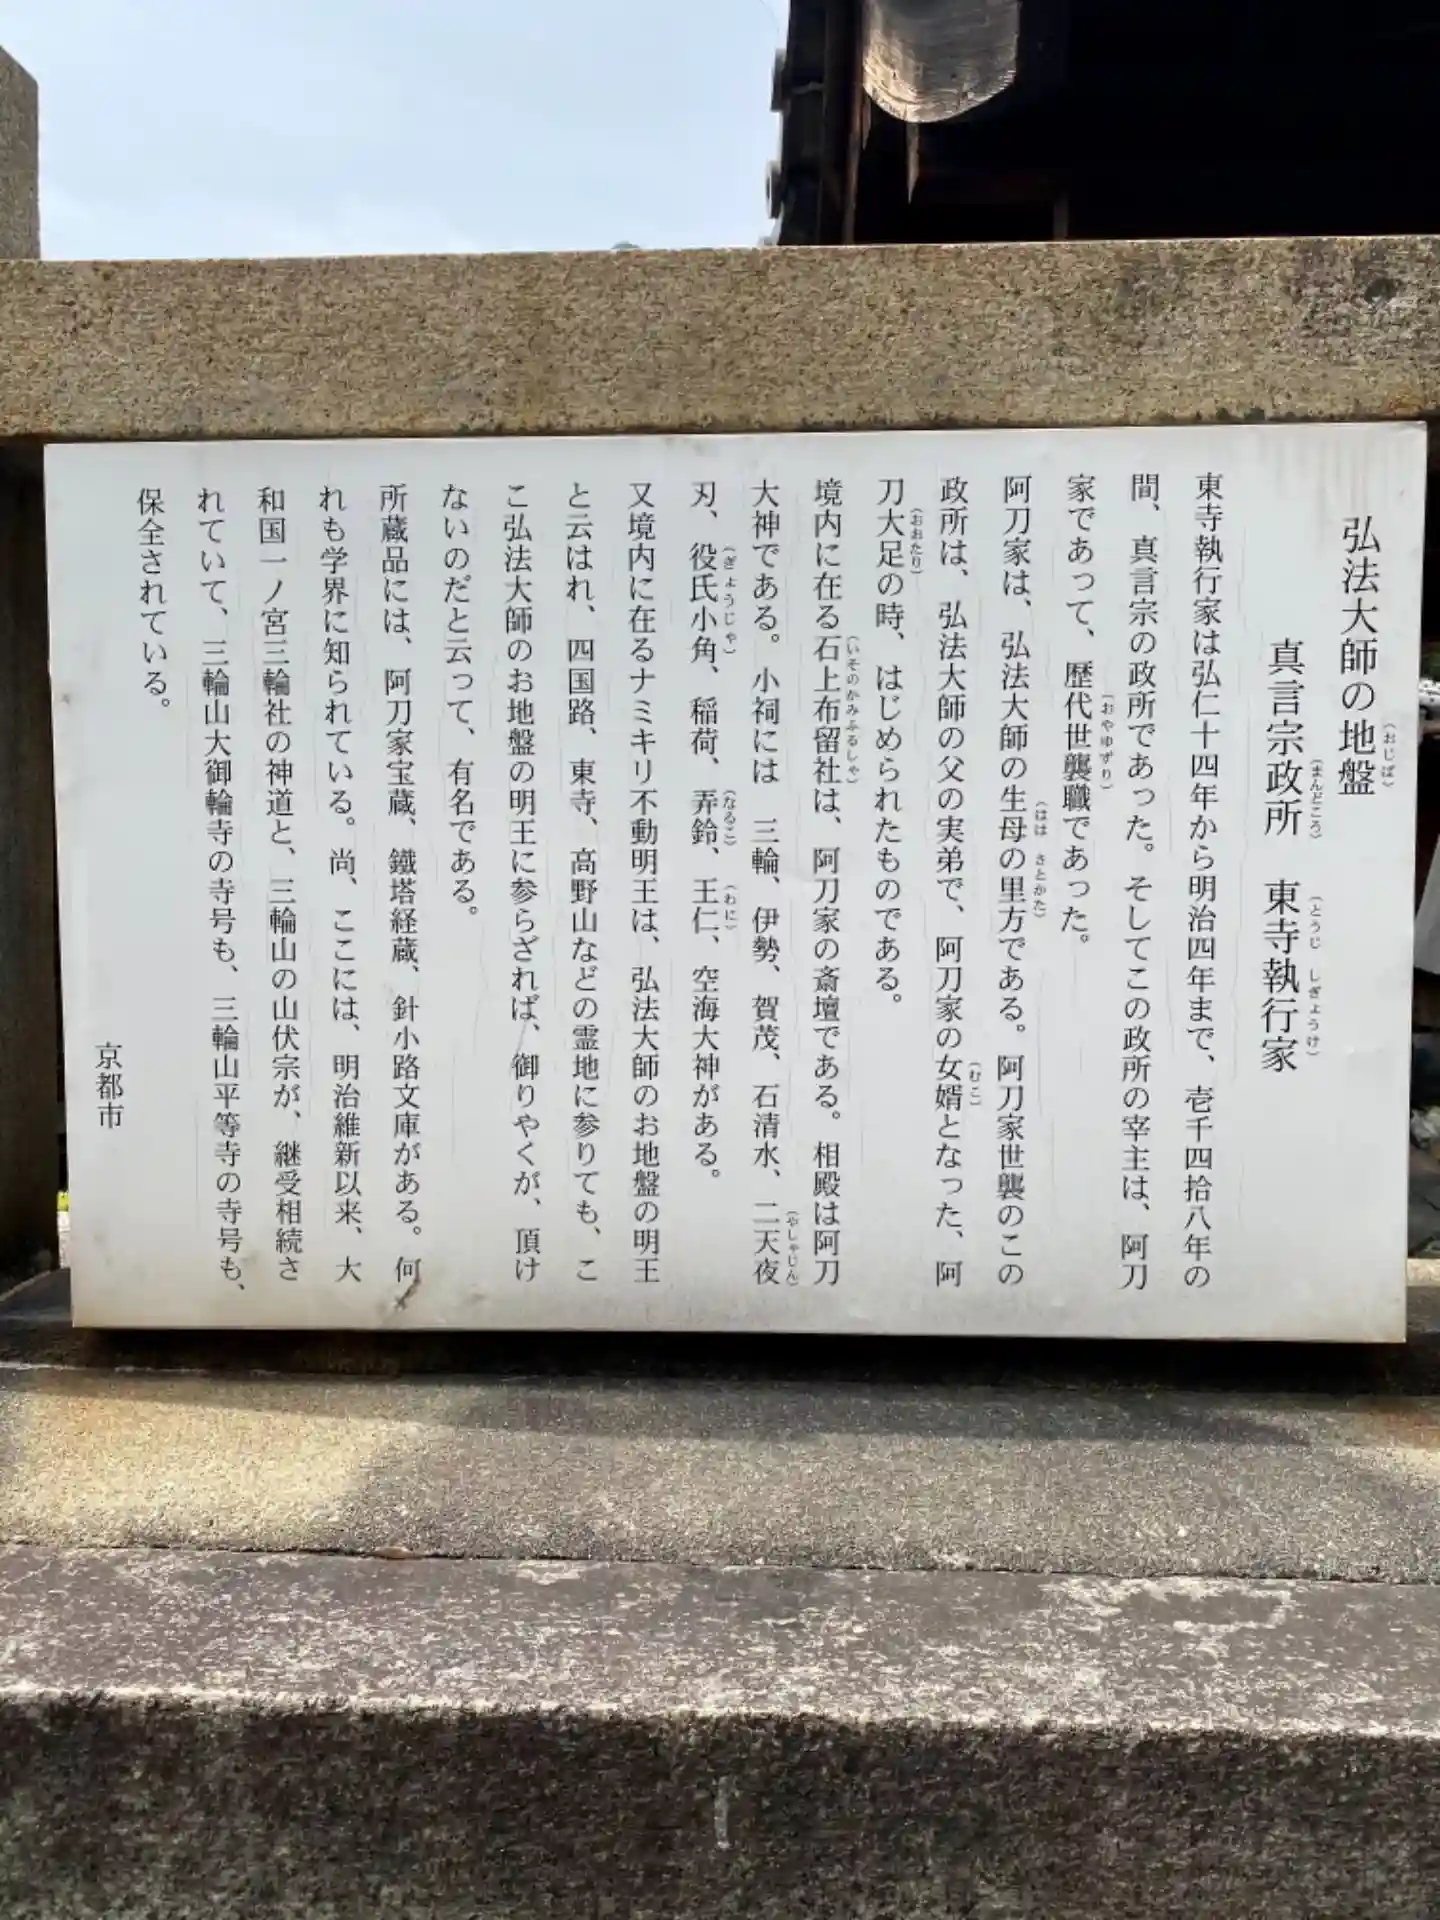 弘法大師の地盤（おじば）
真言宗政所（まんどころ）　東寺執行家（とうじ　しぎょうけ）
東寺執行家は弘仁十四年から明治四年まで、壱千四拾八年の
間、真言宗の政所であった。そしてこの政所の宰主は、阿刀
家であって、歴代世襲職（おやゆずり）であった。
阿刀家は、弘法大師の生母（はは）の里方（さとかた）である。阿刀家世襲のこの
政所は、弘法大師の父の実弟で、阿刀家の女婿（むこ）となった、阿
刀大足（おおたり）の時、はじめられたものである。
境内に在る石上布留社（いそのかみふるしゃ）は、阿刀家の斎壇である。相殿は阿刀
大神である。小祠には　三輪、伊勢、賀茂、石清水、二天夜（やしゃじん）
刃、役氏小角（ぎょうじゃ）、稲荷、弄鈴（なるこ）、王仁（わに）、空海大神がある。
又境内に在るナミキリ不動明王は、弘法大師のお地盤の明王
と云はれ、四国路、東寺、高野山などの霊地に参りても、こ
こ弘法大師のお地盤の明王に参らざれば、御りやくが、頂け
ないのだと云って、有名である。
所蔵品には、阿刀家宝蔵、鐵塔経蔵、針小路文庫がある。何
れも学界に知られている。尚、ここには、明治維新以来、大
和国一ノ宮三輪社の神道と、三輪山の山伏宗が、継受相続さ
れていて、三輪山大御輪寺の寺号も、三輪山平等寺の寺号も、
保全されている。
京都市